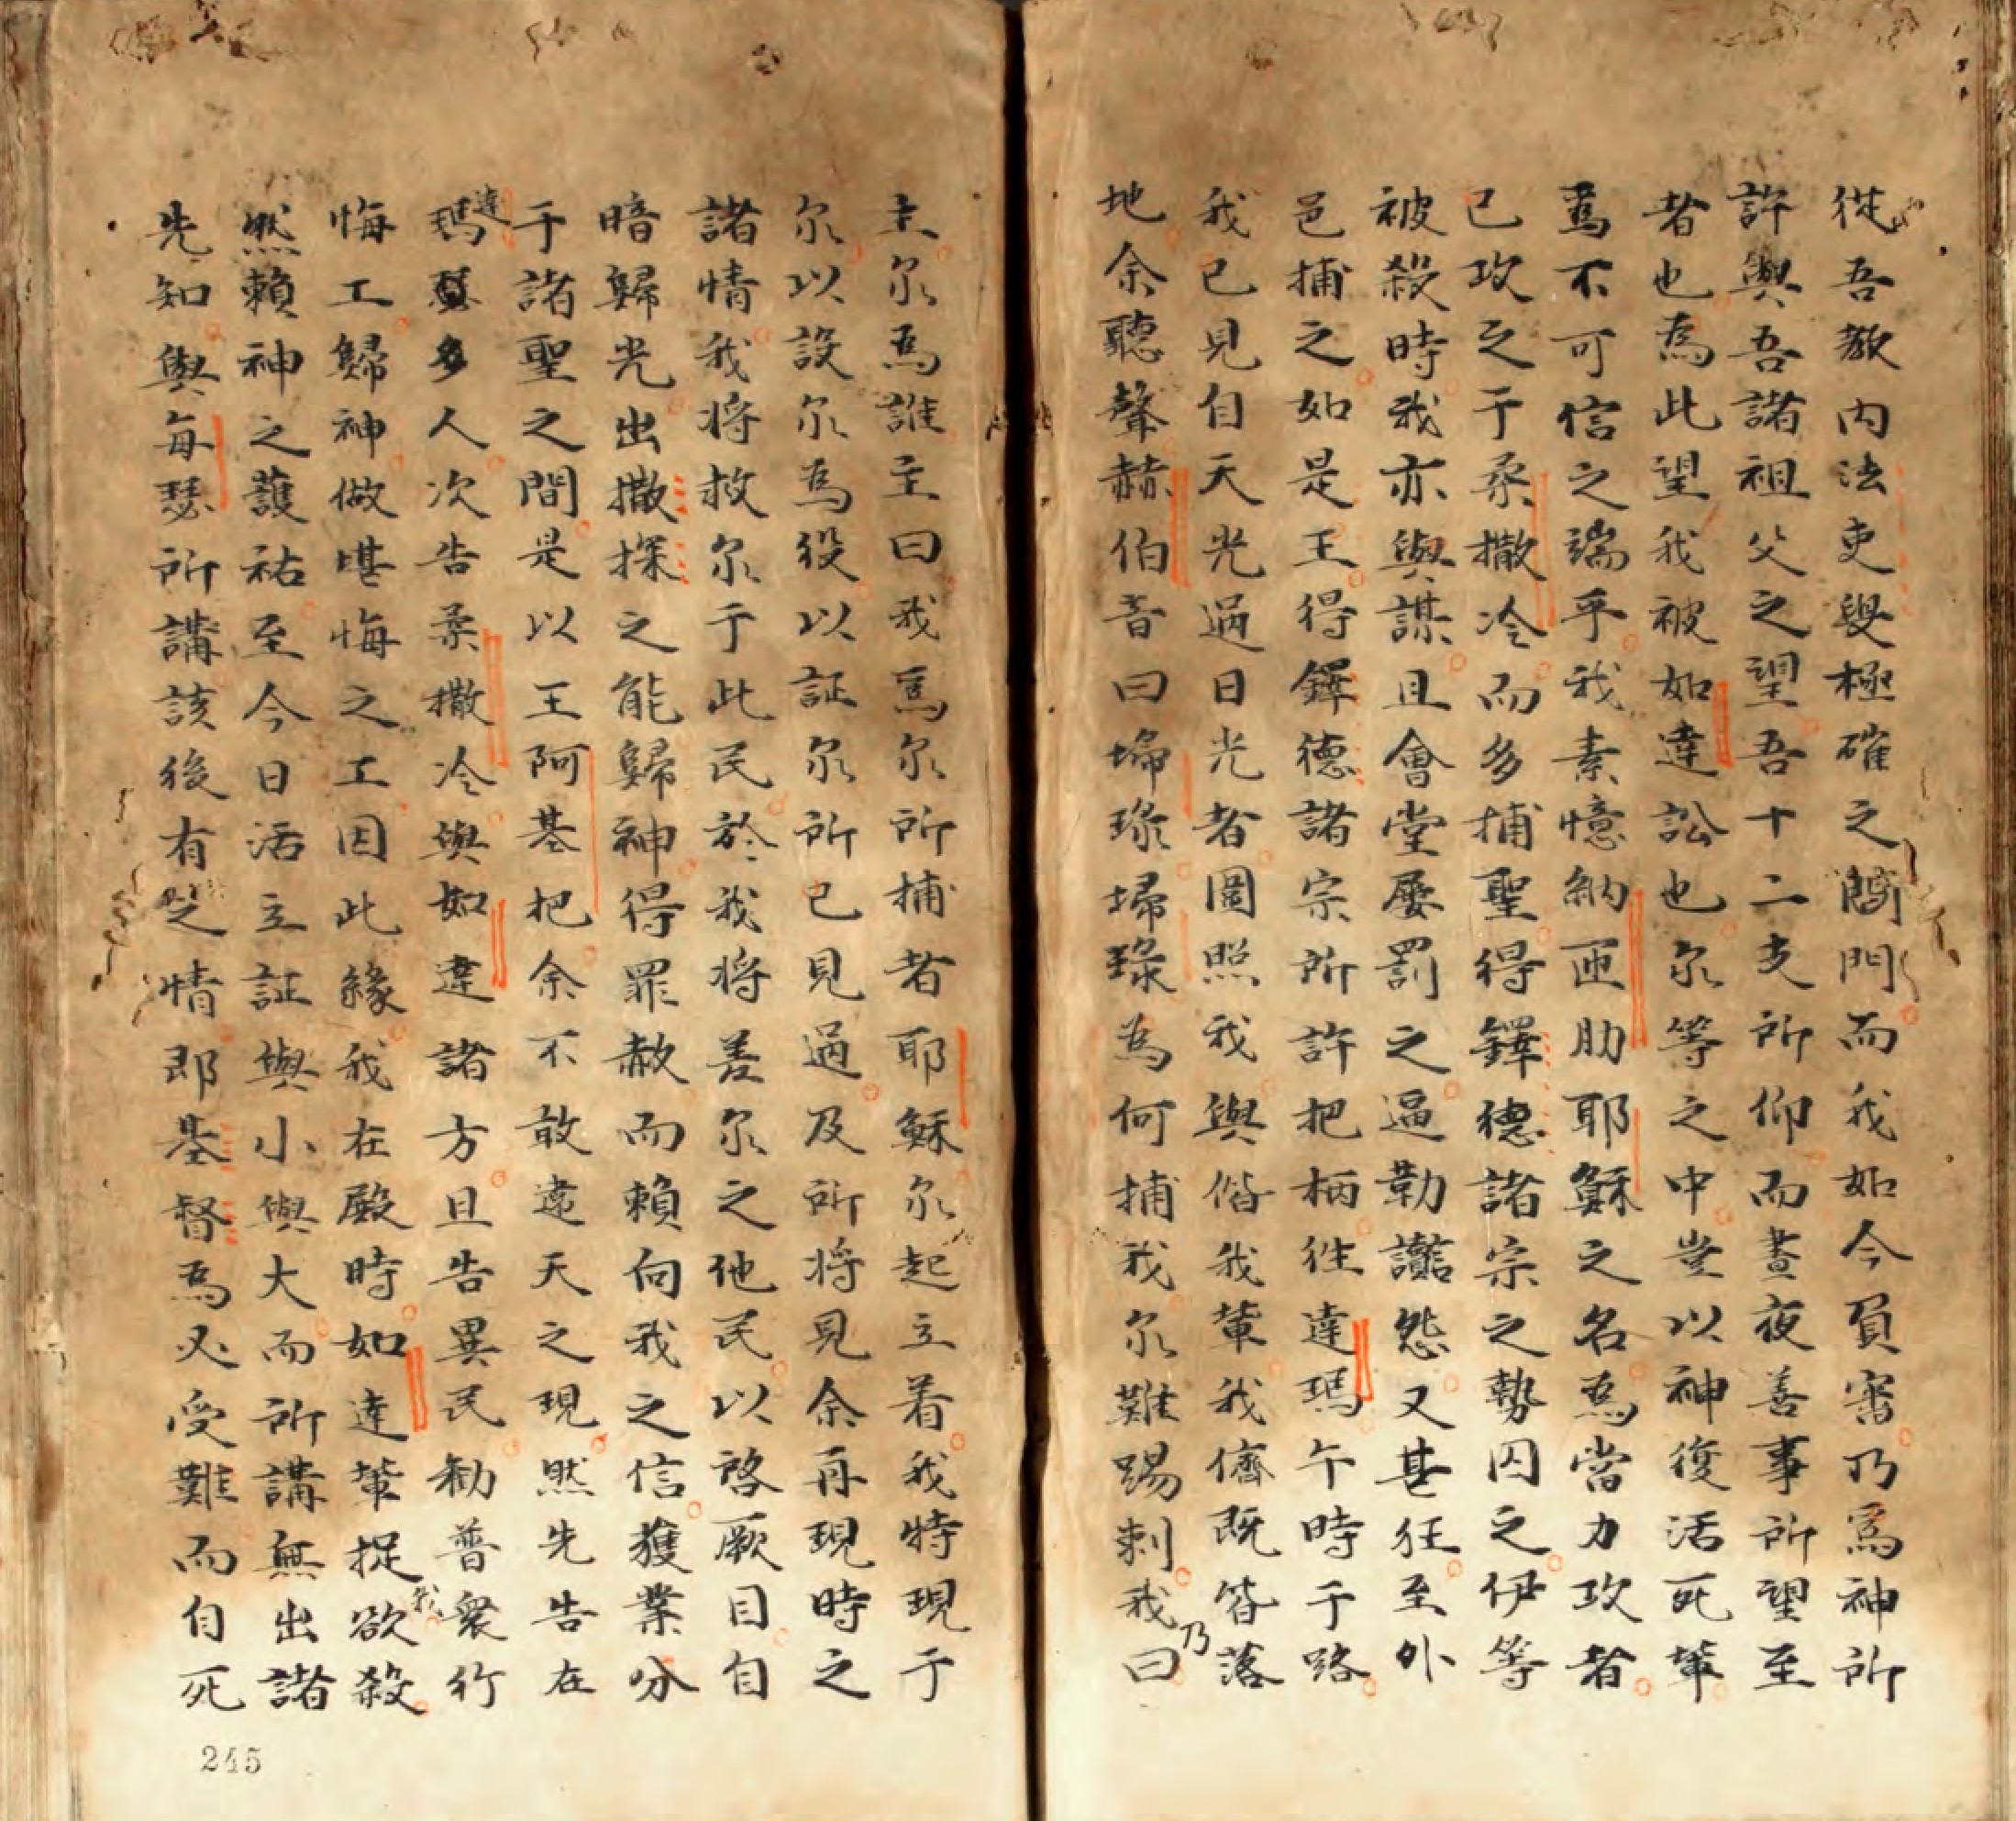 從吾教內法吏𠭇極確之闊門而我如今負審乃為神所
許與吾諸祖父之望吾十二支所仰而晝夜善事所望至
者也為此望我被如達訟也尔等之中豈以神復活死輩
焉不可信之端乎我素憶納匝肋耶穌之名為當力攻者
已攻之于柔撒冷而多捕聖得鐸德諸宗之勢囚之伊等
被殺時我亦與謀且會堂屡罰之逼勒讟怨又甚狂至外
邑捕之如是王得鐸德諸宗所許把柄徃達瑪午時于路
我已見自天光過日光者圍照我與偕我輩我儕既皆落
地余聽聲赫伯音曰掃琭掃琭為何捕我尔難踢刺我乃曰
主尔為誰主曰我為尔所捕者耶穌尔起立着我特現于
尔以設尔為役以証尔所已見過及所將見余再現時之
諸情我將救尔于此民於我將差尔之他民以啓厥目自
暗歸光出撒探之能歸神得罪赦而賴向我之信獲業分
于諸聖之間是以王阿基把余不敢違天之現然先告在
達瑪多人次告柔撒冷與如達諸方且告異民勸普衆行
悔工歸神做堪悔之工因此緣我在殿時如達輩捉我欲殺
然賴神之護祐至今日活立証與小與大而所講無出諸
先知與每瑟所講該後有之情即基督為必受難而自死
245